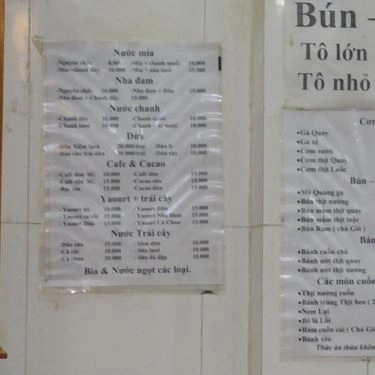 Nước mía
-Nguyên chất 8.000 -Mía + chanh muối 10.000
-Mía+chanh dây 10.000 -Mía + dừa tươi 15.000
Nha đam
-Nguyên chất 10.000 -Nha đam + Dừa 15.000
-Nha đam + Chanh dây 10.000
Nước chanh
-Chanh dây 10.000 -Chanh muối 10.000
-Chanh tươi 10.000 -Chanh
Dừa
Xiêm lạnh 20.000/trái -Dừa ly 10.000
20.000/trái -Dừa xay 15.000
Cafe & Cacao
-Café đen SG 10.000 -Café dừa 15.000
-Café sữa SG 15.000 -Cacao sữa 15.000
-Bạc xỉu 15.000 -Cacao dừa 15.000
Yaourt + trái cây
-Yaourt đá 10.000 -Yaourt Dâu 15.000
-Yaourt cà rốt 15.000 -Yaourt Nha Đam 15.000
-Yaourt Dừa 15.000 -Yaourt Cà Chua 15.000
Nước Trái cây
-Dâu sữa 15.000 -Sâm dứa 10.000
-Cà rốt 10.000 -Sữa tươi 10.000
-Cà chua 10.000 -Sữa đá đập 10.000
Bia & Nước ngọt các loại.
Bún -
Tô lớn
Tô nhỏ
Cơ
-Gà Quay
-Gà xé
-Cơm sườn
-Cơm thịt Quay
-Cơm thịt Luộc
Bún -
-Mỳ Quảng gà
-Bún thịt nướng
-Bún mắm thịt quay
-Bún mắm thịt luộc
-Bún Ram ( chả Giò )
Bán
-Bánh cuốn chả
-Bánh ướt thịt quay
-Bánh ướt thịt nướng
Các món cuốn
-Thịt nướng cuốn
-Bánh tráng Thịt heo ( 2
-Nem Lụi
-Bò lá Lốt
-Ram cuốn cải ( Chả Giò
-Bánh xèo
Thức ăn thừa không